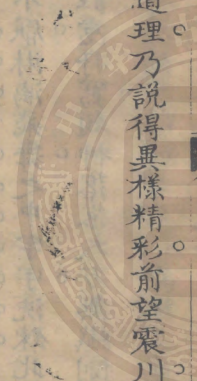 道理乃說得異樣精彩前望震川